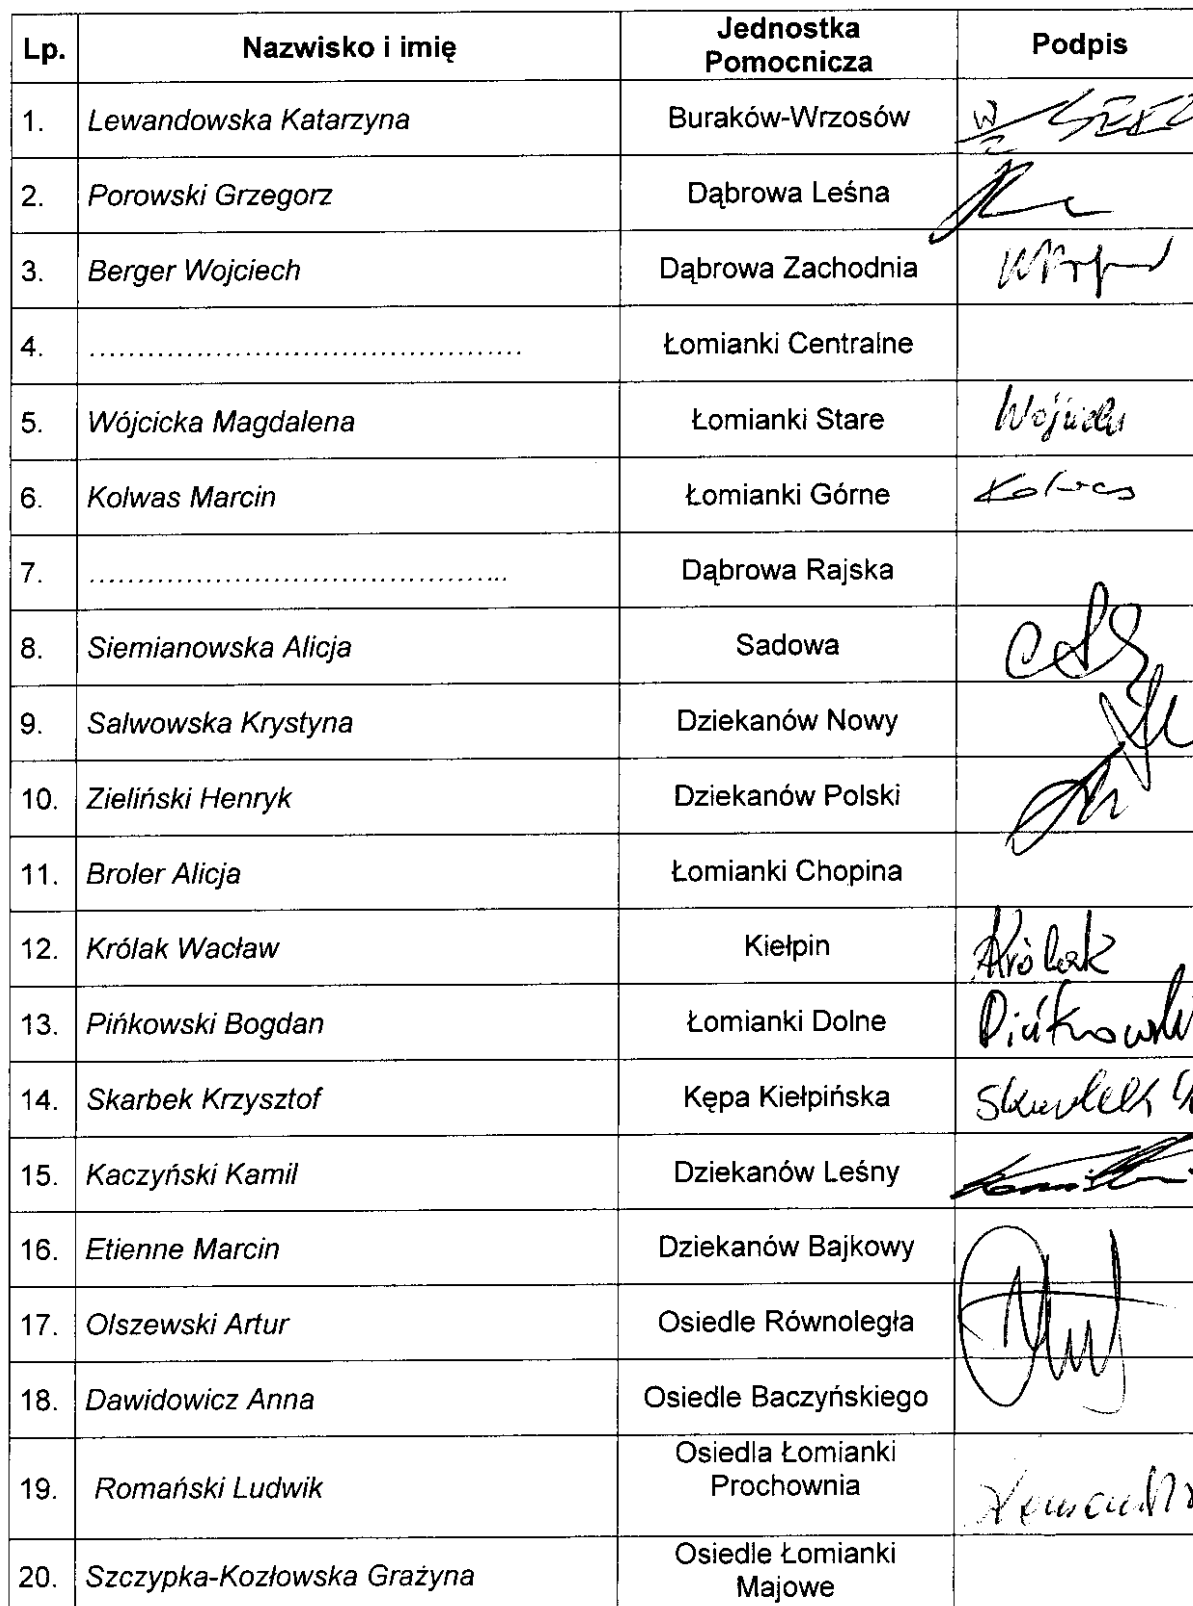 Lp. Nazwisko i imię Jednostka Pomocnicza Podpis
1. Lewandowska Katarzyna Buraków-Wrzosów
2. Porowski Grzegorz Dąbrowa Leśna
3. Berger Wojciech Dąbrowa Zachodnia
4. ............................................... Łomianki Centralne
5. Wójcicka Magdalena Łomianki Stare
6. Kolwas Marcin Łomianki Górne Kolwas
7. ............................................. Dąbrowa Rajska
8. Siemianowska Alicja Sadowa
9. Salwowska Krystyna Dziekanów Nowy
10. Zieliński Henryk Dziekanów Polski
11. Broler Alicja Łomianki Chopina
12. Królak Wacław Kiełpin Królak
13. Pińkowski Bogdan Łomianki Dolne Pińkowski
14. Skarbek Krzysztof Kępa Kiełpińska Skarbek
15. Kaczyński Kamil Dziekanów Leśny
16. Etienne Marcin Dziekanów Bajkowy
17. Olszewski Artur Osiedle Równoległa
18. Dawidowicz Anna Osiedle Baczyńskiego
19. Romański Ludwik Osiedla Łomianki Prochownia
20. Szczypka-Kozłowska Grażyna Osiedle Łomianki Majowe